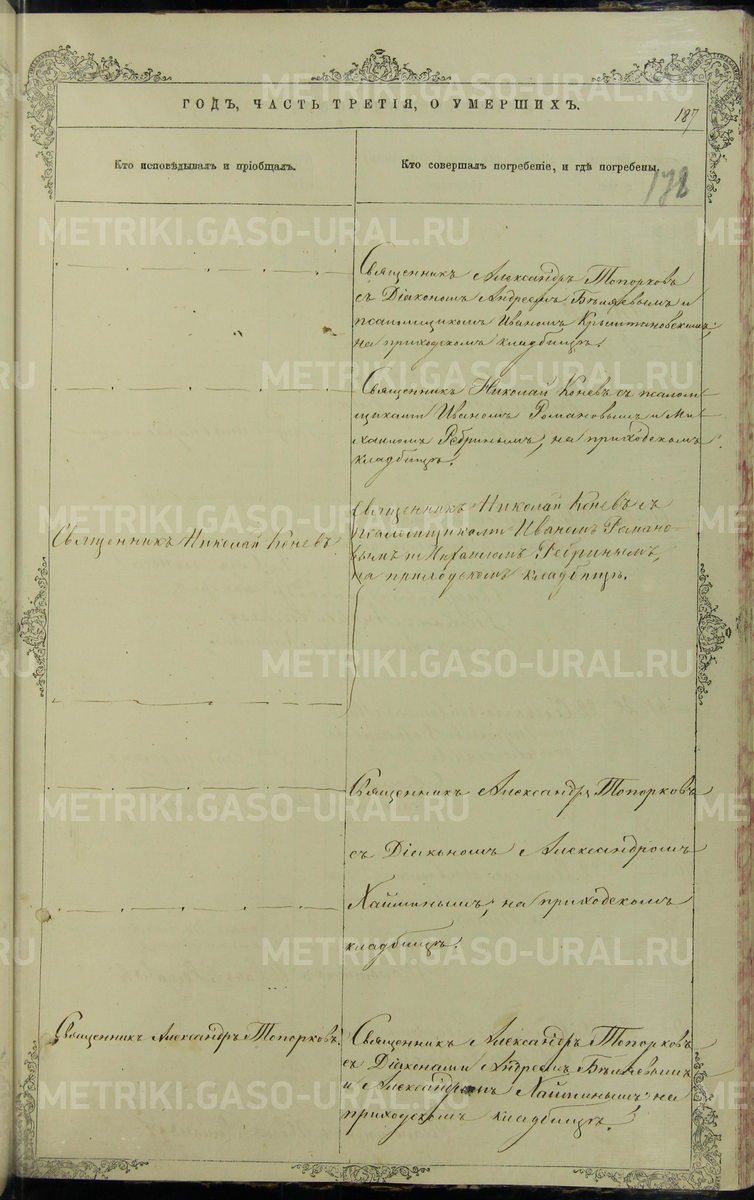 ГОДЪ, ЧАСТЬ ТРЕТІЯ, О УМЕРШИХЪ.
187
178
Кто исповѣдывалъ и пріобщалъ.
Кто совершалъ погребеніе, и гдѣ погребены.
Священникъ Александръ Топорковъ
съ Діакономъ Андреемъ Бѣляевымъ и
псаломщикомъ Иваномъ
на приходскомъ кладбищѣ.
Священникъ Николай Коневъ съ псалом-
щиками Иваномъ Романовымъ и Ми-
хаиломъ Ребринымъ, на приходскомъ
кладбищѣ.
Священникъ Николай Коневъ
Священникъ Николай Коневъ съ
псаломщиками Иваномъ Романо-
вымъ и Михаиломъ Ребринымъ,
на приходскомъ кладбищѣ.
Священникъ Александръ Топорковъ
съ Діакономъ Александромъ
Хайминымъ, на приходскомъ
кладбищѣ.
Священникъ Александръ Топорковъ.
Священникъ Александръ Топорковъ
съ Діаконами Андреемъ Бѣляевымъ
и Александромъ Хайминымъ на
приходскомъ кладбищѣ.
METRIKI.GASO-URAL.RU